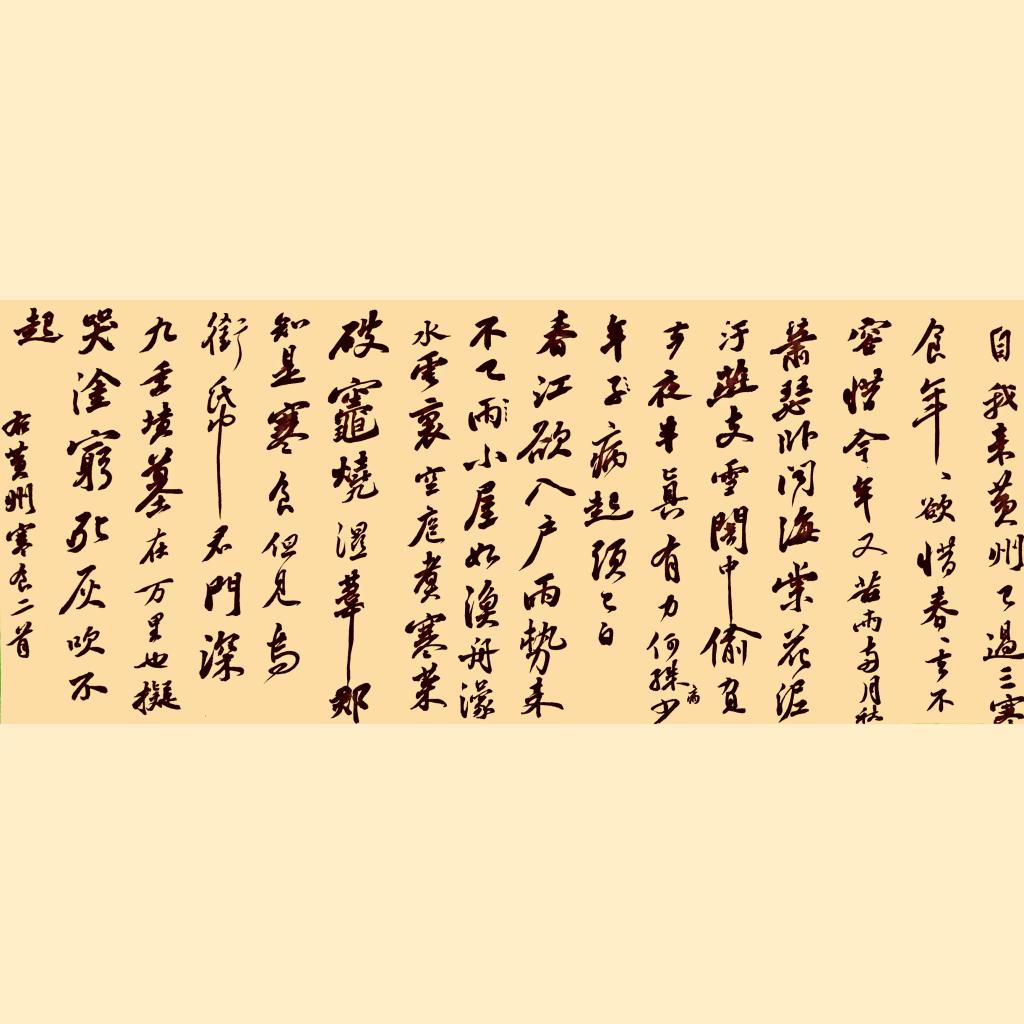 自我来黄州已過三寒
食年、欲惜春、去不
容惜今年又苦雨兩月秋
蕭瑟卧聞海棠花泥
汙燕支雪闇中偷負
去夜半真有力何殊少病
年子病起頭已白
春江欲入户雨勢来
不已雨小屋如漁舟濛
水雲裏空庖煮寒菜
破竈燒濕葦那
知是寒食但見烏
銜帋君門深
九重墳墓在万里也擬
哭塗窮死灰吹不
起
右黄州寒食二首